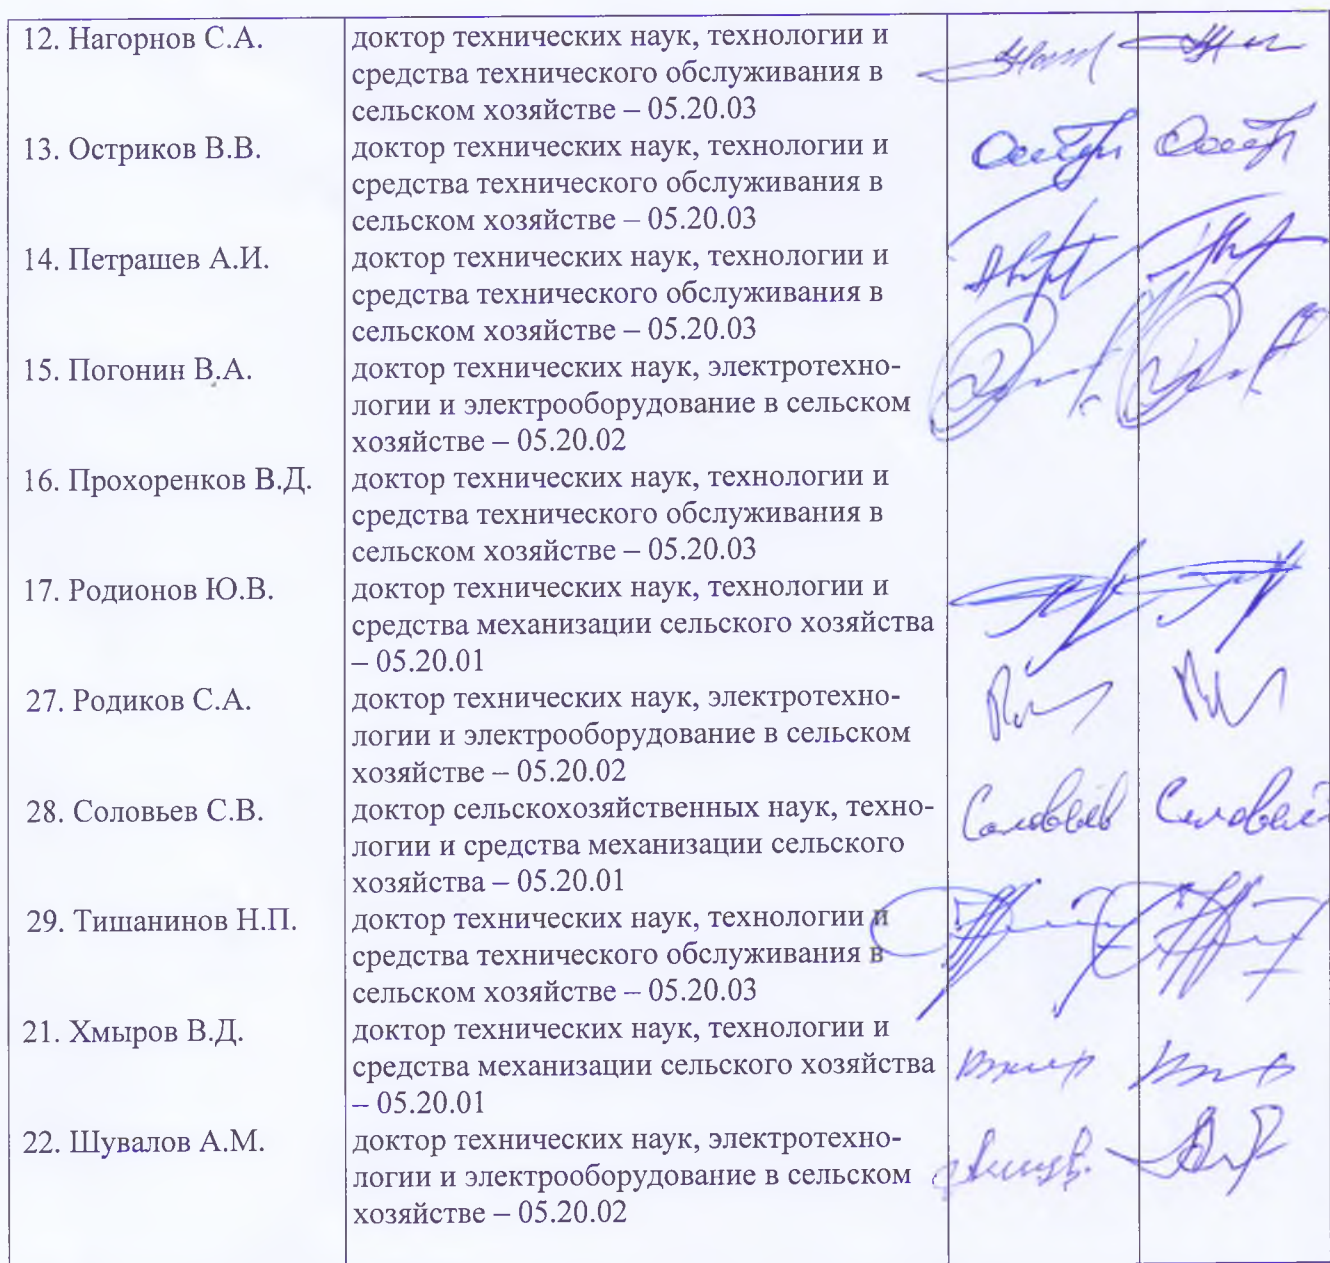 12. Нагорнов С.А.
доктор технических наук, технологии и
средства технического обслуживания в
сельском хозяйстве – 05.20.03
13. Остриков В.В.
доктор технических наук, технологии и
средства технического обслуживания в
сельском хозяйстве – 05.20.03
14. Петрашев А.И.
доктор технических наук, технологии и
средства технического обслуживания в
сельском хозяйстве – 05.20.03
15. Погонин В.А.
доктор технических наук, электротехно-
логии и электрооборудование в сельском
хозяйстве – 05.20.02
16. Прохоренков В.Д.
доктор технических наук, технологии и
средства технического обслуживания в
сельском хозяйстве – 05.20.03
17. Родионов Ю.В.
доктор технических наук, технологии и
средства механизации сельского хозяйства
– 05.20.01
27. Родиков С.А.
доктор технических наук, электротехно-
логии и электрооборудование в сельском
хозяйстве – 05.20.02
28. Соловьев С.В.
доктор сельскохозяйственных наук, техно-
логии и средства механизации сельского
хозяйства – 05.20.01
29. Тишанинов Н.П.
доктор технических наук, технологии и
средства технического обслуживания в
сельском хозяйстве – 05.20.03
21. Хмыров В.Д.
доктор технических наук, технологии и
средства механизации сельского хозяйства
– 05.20.01
22. Шувалов А.М.
доктор технических наук, электротехно-
логии и электрооборудование в сельском
хозяйстве – 05.20.02